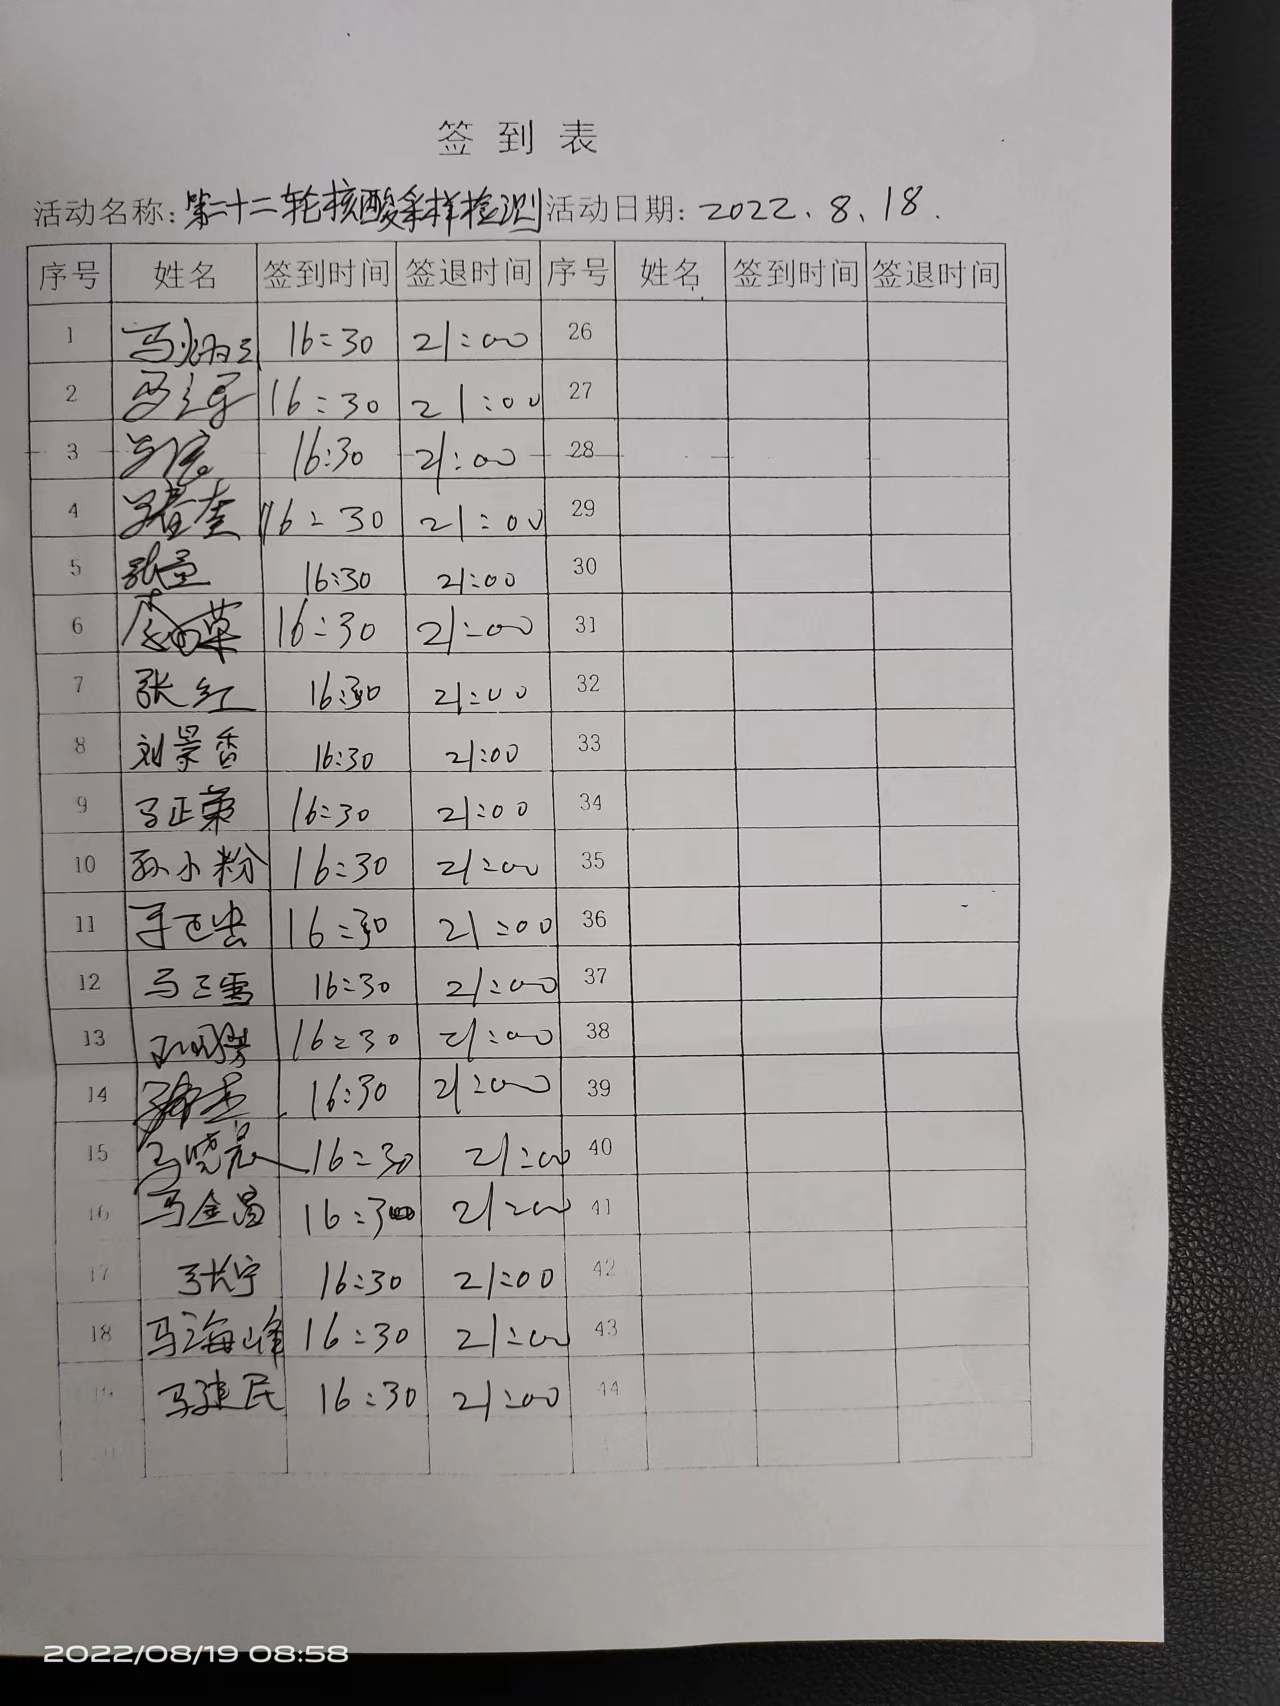 签到表
活动名称:第二十二轮核酸采样检测 活动日期: 2022.8.18.
序号 姓名 签到时间 签退时间 序号 姓名 签到时间 签退时间
1 16:30 21:00 26
2 16:30 21:00 27
3 16:30 21:00 28
4 16:30 21:00 29
5 16:30 21:00 30
6 16:30 21:00 31
7 张红 16:30 21:00 32
8 刘景香 16:30 21:00 33
9 马正荣 16:30 21:00 34
10 孙小粉 16:30 21:00 35
11 16:30 21:00 36
12 马三雪 16:30 21:00 37
13 16:30 21:00 38
14 16:30 21:00 39
15 马晓晨 16:30 21:00 40
16 马金昌 16:30 21:00 41
17 马长宁 16:30 21:00 42
18 马海峰 16:30 21:00 43
19 马建民 16:30 21:00 44
2022/08/19 08:58